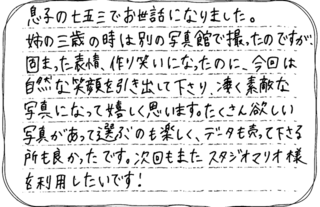 息子の七五三でお世話になりました。
姉の三歳の時は別の写真館で撮ったのですが、
固まった表情、作り笑いになったのに、今回は
自然な笑顔を引き出して下さり、凄く素敵な
写真になって嬉しく思います。たくさん欲しい
写真があって選ぶのも楽しく、データも売って下さる
所も良かったです。次回もまたスタジオマリオ様
を利用したいです!